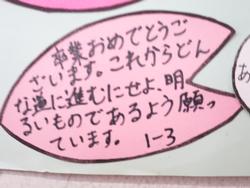 卒業おめでとうご
ざいます。これからどん
な道に進むにせよ、明
るいものであるよう願っ
ています。 1-3
あ